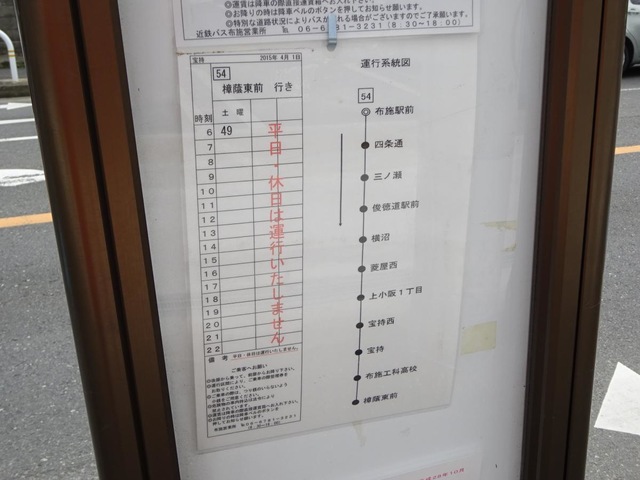 ◎運賃は降車の際直接運賃箱へお入れ下さい。
◎お降りの時は降車ベルのボタンを押してお知らせ願います。
◎特別な道路状況によりバスが遅れる場合がございますのでご了承願います。
近鉄バス布施営業所
(8:30~18:00)
宝持 2015年 4月 1日
54
樟蔭東前 行き
時刻 土 曜
6 49
7
8
9
10
11
12
13
14
15
16
17
18
19
20
21
22
平日・休日は運行いたしません
備 考 平日・休日は運行いたしません。
ご乗客へお願い
運行系統図
54
布施駅前
四条通
三ノ瀬
俊徳道駅前
横沼
菱屋西
上小阪1丁目
宝持西
宝持
布施工科高校
樟蔭東前